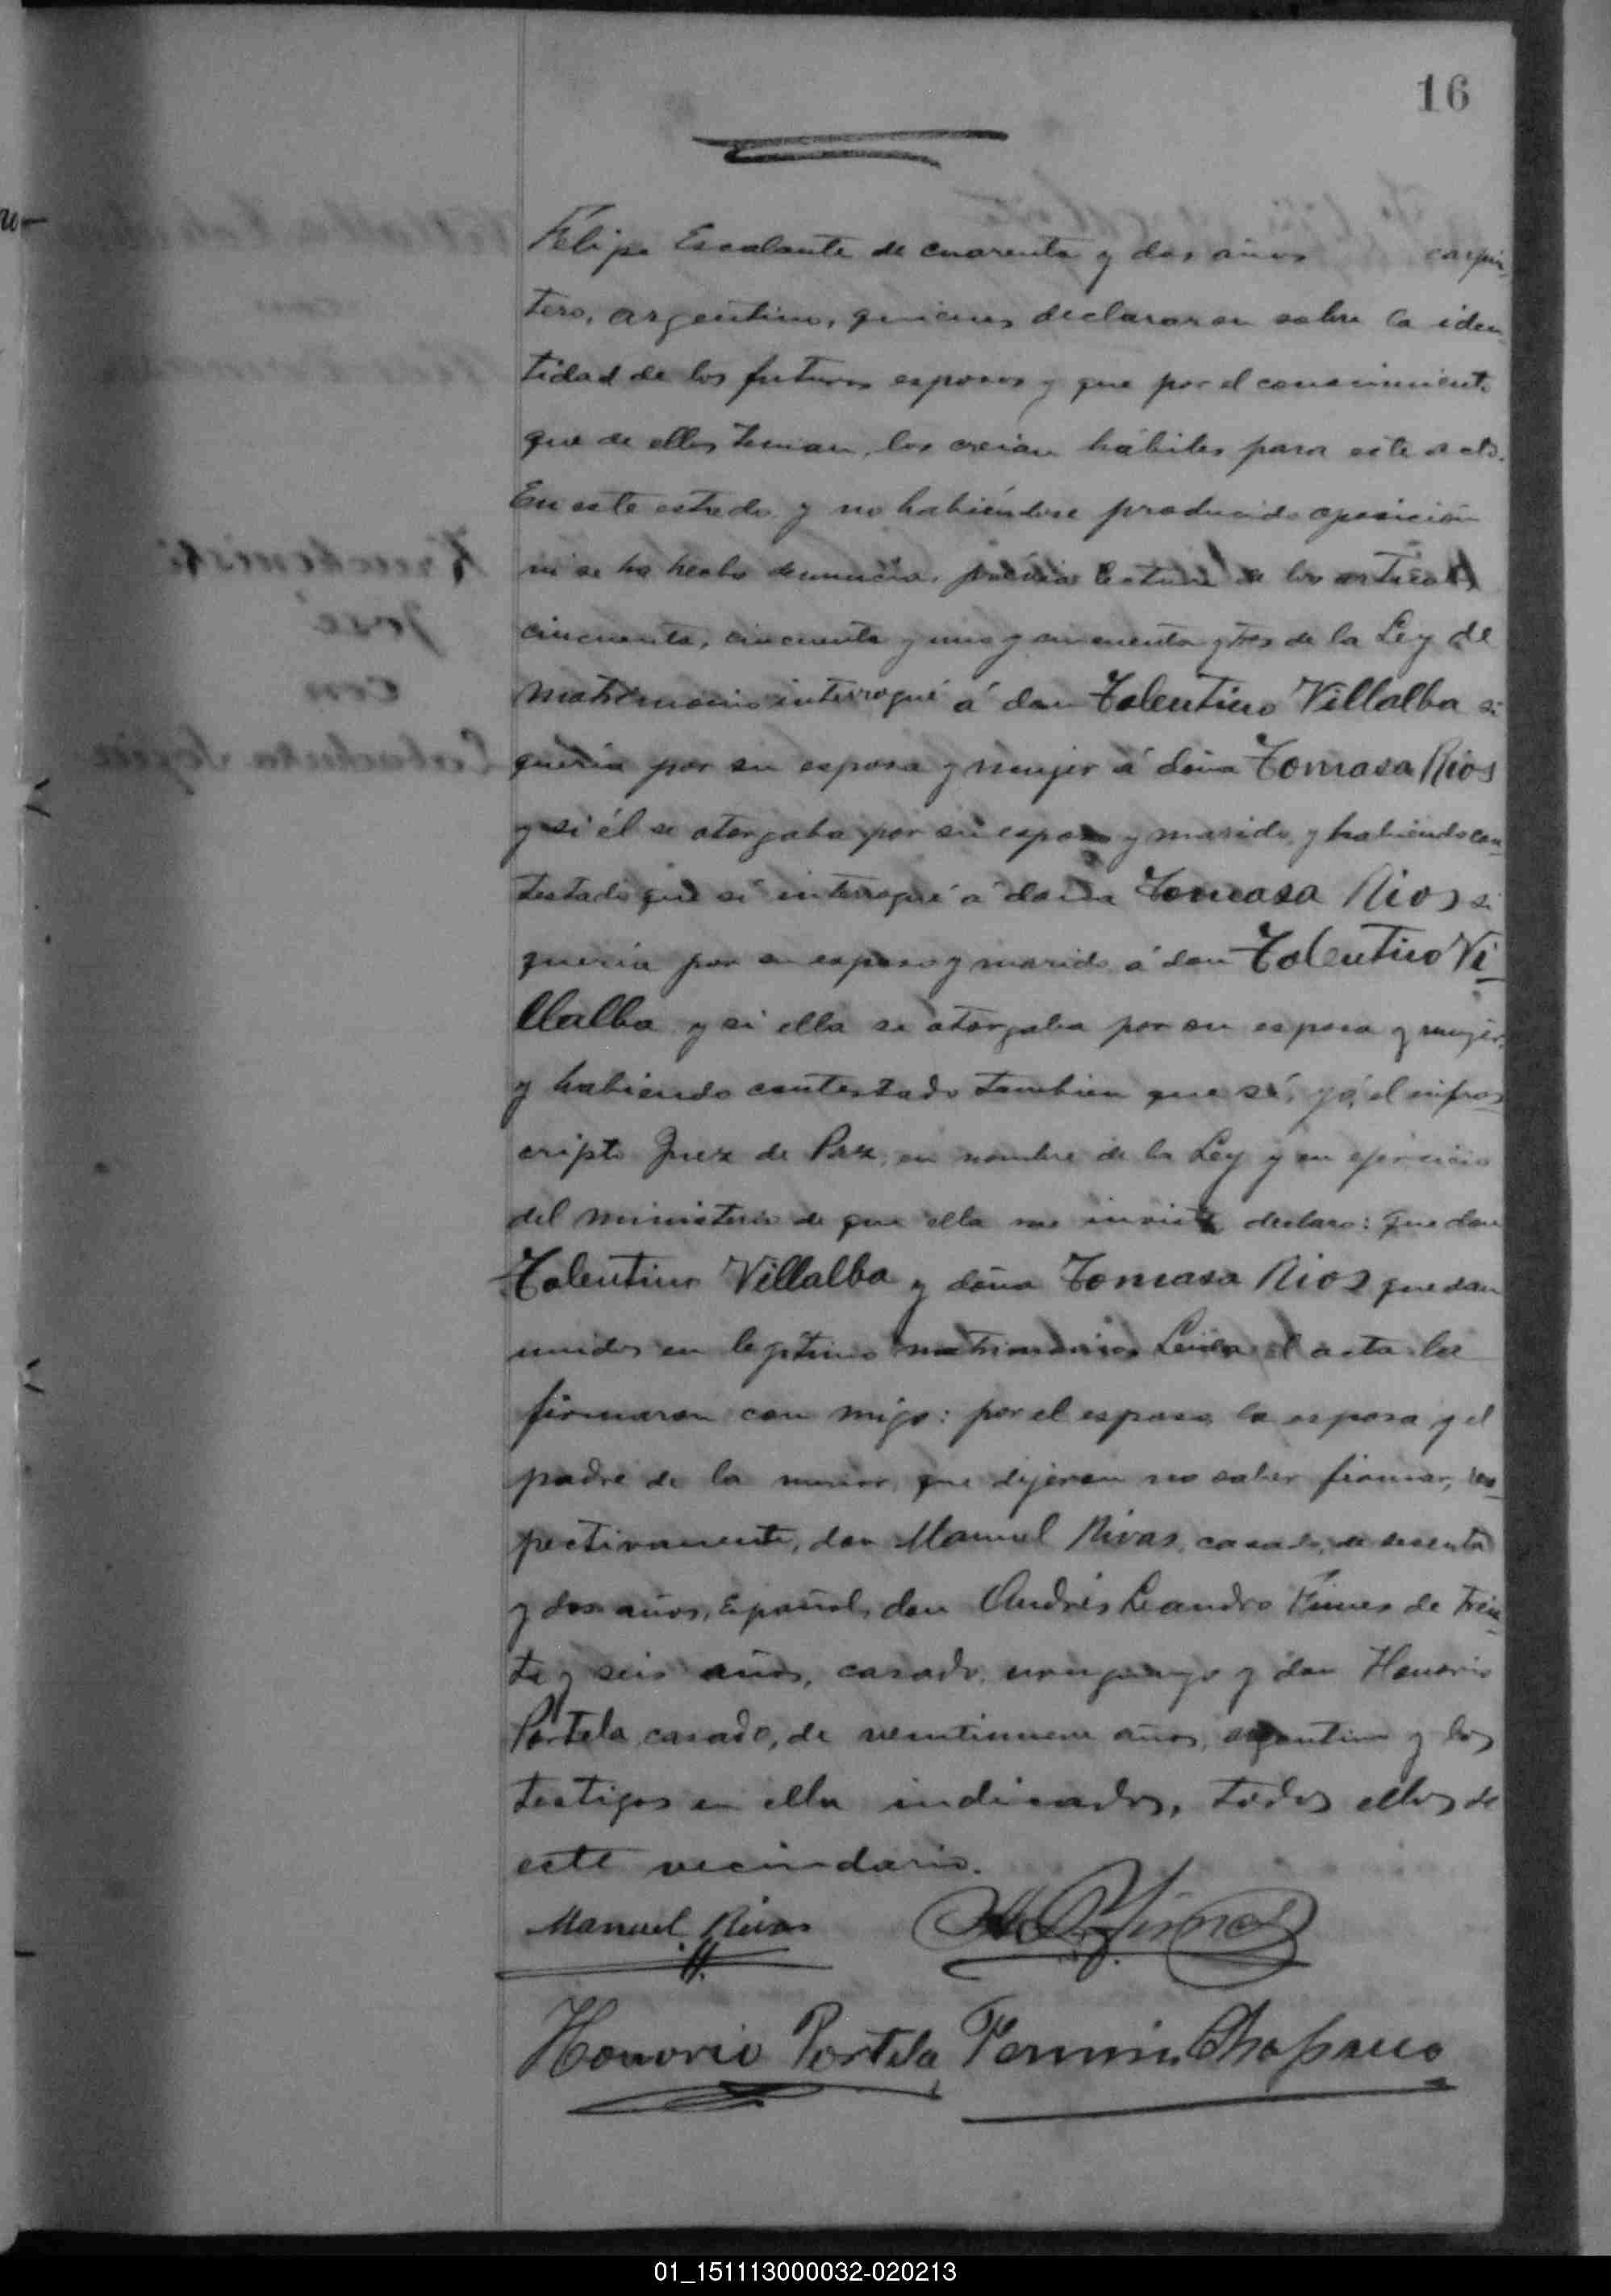 16
Felipe Escalante de cuarenta y dos años carpin-
tero, argentino, quienes declararon sobre la iden-
tidad de los futuros esposos y que por el conocimiento
que de ellos tenian, los creian hábiles para este acto.
En este estado y no habiéndose producido oposición
ni se ha hecho denuncia, previa lectura de los articulos
cincuenta, cincuenta y uno y cincuenta y tres de la Ley de
matrimonio interrogué á don Tolentino Villalba si
queria por su esposa y mujer á doña Tomasa Rios
y si él se otorgaba por su esposo y marido, y habiendo con-
testado que sí interrogué á doña Tomasa Rios si
queria por su esposo y marido á don Tolentino Vi-
llalba y si ella se otorgaba por su esposa y mujer,
y habiendo contestado tambien que sí, yó, el infras-
cripto Juez de Paz, en nombre de la Ley y en ejercicio
del ministerio de que ella me inviste declaro: que don
Tolentino Villalba y doña Tomasa Rios quedan
unidos en legitimo matrimonio. Leida el acta la
firmaron con migo: por el esposo, la esposa y el
padre de la menor, que dijeron no saber firmar, res-
pectivamente, don Manuel Rivas, casado, de sesenta
y dos años, Español, don Andrés Leandro de Trein-
ta y seis años, casado, uruguayo y don Honorio
Portela, casado, de veintinueve años, argentino y los
testigos en ella indicados, todos ellos de
este vecindario.
Manuel Rivas
Honorio Portela Fermin
01_151113000032-020213